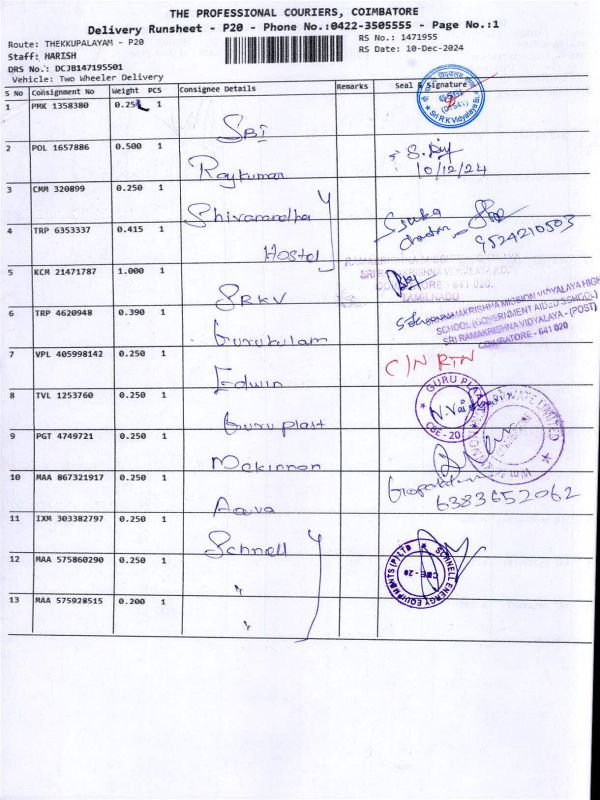 THE PROFESSIONAL COURIERS, COIMBATORE
Delivery Runsheet - P20 - Phone No.:0422-3505555 - Page No.:1
Route: THEKKUPALAYAM - P20
RS No.: 1471955
Staff: HARISH
RS Date: 10-Dec-2024
DRS No.: DCJB147195501
Vehicle: Two Wheeler Delivery
S No Consignment No Weight PCS Consignee Details Remarks Seal & Signature
1 PMK 1358380 0.250 1 SBI
2 POL 1657886 0.500 1 Rajkumar 10/12/24
3 CMM 320899 0.250 1 Shivanandha
4 TRP 6353337 0.415 1 Hostel 9524210503
5 KCM 21471787 1.000 1 SRKV
SRI RAMAKRISHNA MISSION VIDYALAYA HIGH
SCHOOL (GOVERNMENT AIDED SCHOOL)
SRI RAMAKRISHNA VIDYALAYA - (POST)
COIMBATORE - 641 020
6 TRP 4620948 0.390 1 Gurukulam
7 VPL 405998142 0.250 1 Edwin C/N RTN
8 TVL 1253760 0.250 1 Guru plast
GURU PLAST
CBE - 20
9 PGT 4749721 0.250 1 Makinnon
10 MAA 867321917 0.250 1 6383652062
11 IXM 303382797 0.250 1 Schnell
12 MAA 575860290 0.250 1 "
SCHNELL ENERGY EQUIPMENTS (P) LTD
CBE - 20
13 MAA 575928515 0.200 1 "